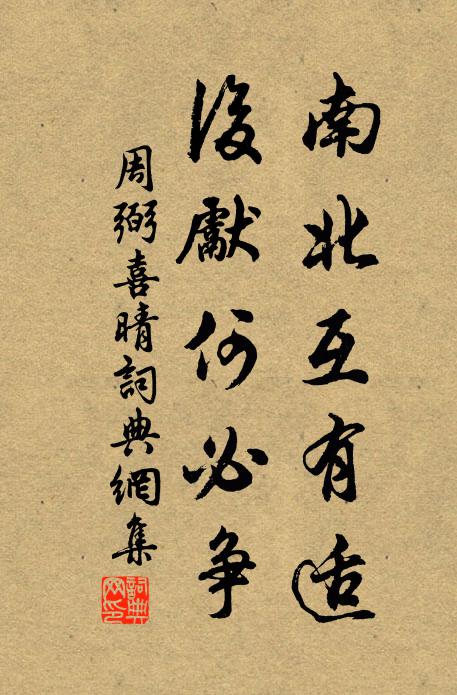 南北互有适
後獻何必争
周弼喜晴詞典網集
詞典網印